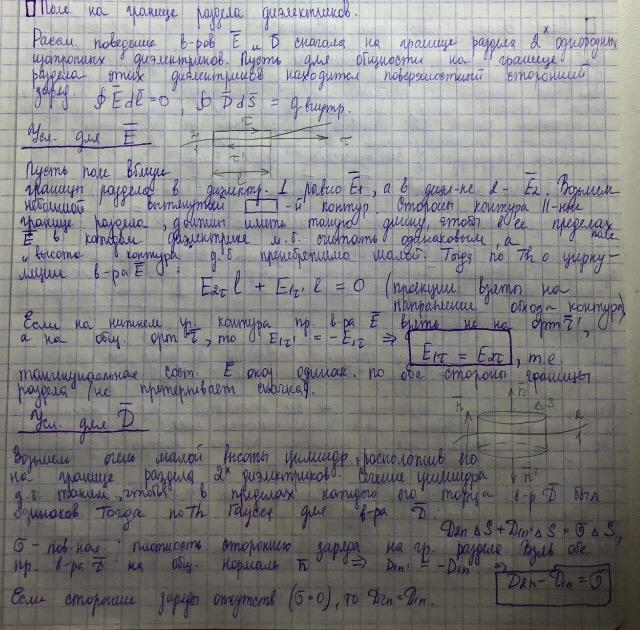 Поле на границе раздела диэлектриков.
Рассм. поведение в-ров E̅ и D̅ сначала на границе раздела 2ˣ однородных
изотропных диэлектриков. Пусть для общности на границе
раздела этих диэлектриков находится поверхностный сторонний
заряд. ∮ E̅ dl̅ = 0, ∮ D̅ dS̅ = q внутр.
Усл. для E̅
Пусть поле вблизи
границы раздела в диэлектр. 1 равно E̅₁, а в диэл-ке 2 - E̅₂. Возьмем
небольшой вытянутый ▭-й контур. Стороны контура ||-ные
границе раздела, должны иметь такую длину, чтобы в ее пределах поле
E̅ в каждом диэлектрике м.б. считать одинаковым, а
"высота" контура д.б. пренебрежимо малой. Тогда по Th о цирку-
ляции в-ра E̅:
E₂τ l + E₁τ' l = 0 (проекции взяты на
направление обхода контура)
Если на нижнем уч. контура пр. в-ра E̅ взять не на орт τ̅',
а на общ. орт τ̅, то E₁τ' = -E₁τ ⇒ E₁τ = E₂τ, т.е
тангенциальная сост. E̅ оказ. одинак. по обе стороны границы
раздела (не претерпевает скачка).
Усл. для D̅
Возьмем очень малой высоты цилиндр, расположив его
на границе раздела 2ˣ диэлектриков. Сечение цилиндра
д.б. таким, чтобы в пределах каждого его торца в-р D̅ был
одинаков. Тогда по Th Гаусса для в-ра D̅
D₂n ΔS + D₁n' ΔS = σ ΔS,
σ - пов-ная плотность стороннего заряда на гр. раздела. Взяв обе
пр. в-ра D̅ на общ. нормаль n̅ ⇒ D₁n' = -D₁n ⇒
D₂n - D₁n = σ
Если сторонние заряды отсутств (σ=0), то D₂n = D₁n.